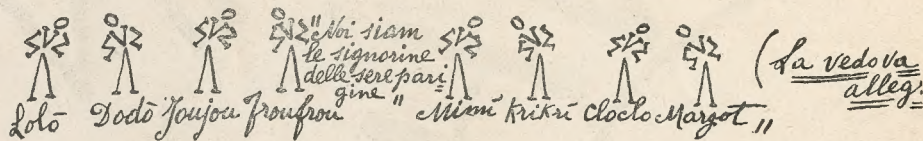 "Noi siam
le signorine
delle sere pari=
gine"
Lolō Dodō Joujou Froufrou Mimi Krikri Cloclo Margot"
(La vedova
alleg: